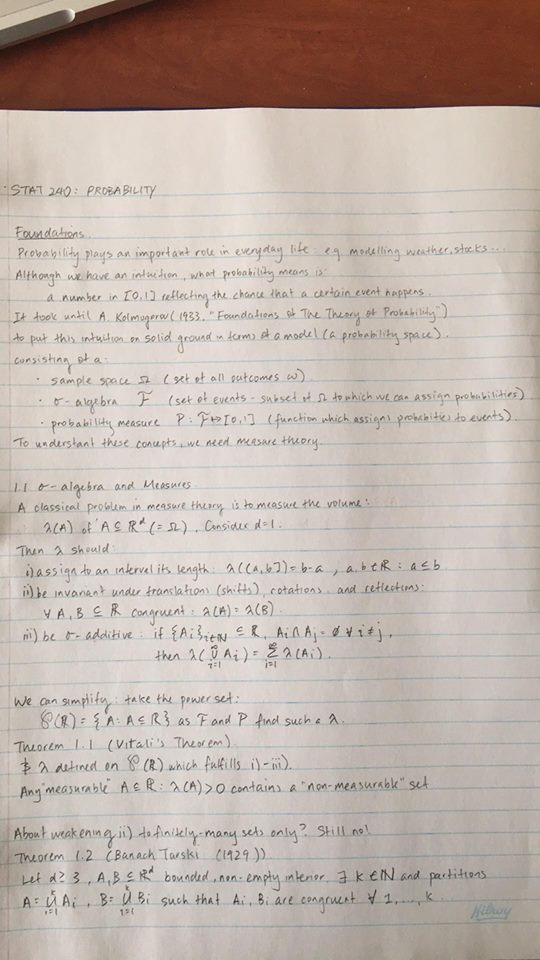 STAT 240: PROBABILITY
Foundations.
Probability plays an important role in everyday life: e.g. modelling weather, stocks...
Although we have an intuition, what probability means is:
a number in [0,1] reflecting the chance that a certain event happens.
It took until A. Kolmogorov (1933, "Foundations of The Theory of Probability")
to put this intuition on solid ground in terms of a model (a probability space).
consisting of a:
· sample space Ω (set of all outcomes ω)
· σ-algebra F (set of events - subset of Ω to which we can assign probabilities)
· probability measure P: F↦[0,1] (function which assigns probabities to events).
To understant these concepts, we need measure theory.
1.1 σ-algebra and Measures.
A classical problem in measure theory is to measure the volume:
λ(A) of A ⊆ ℝᵈ (=Ω). Consider d=1.
Then λ should:
i) assign to an interval its length: λ((a,b])=b-a, a,b∈ℝ: a≤b
ii) be invariant under translations (shifts), rotations, and reflections:
∀ A,B ⊆ ℝ congruent: λ(A)=λ(B).
iii) be σ-additive: if {Ai}i∈ℕ ⊆ ℝ, Ai∩Aj=∅ ∀ i≠j,
then λ(∪_{i=1}^∞ Ai) = Σ_{i=1}^∞ λ(Ai).
We can simplify: take the power set:
℘(ℝ) = {A: A⊆ℝ} as F and P find such a λ.
Theorem 1.1 (Vitali's Theorem)
∄ λ defined on ℘(ℝ) which fulfills i)-iii).
Any "measurable" A⊆ℝ: λ(A)>0 contains a "non-measurable" set
About weakening ii) to finitely-many sets only? Still no!
Theorem 1.2 (Banach Tarski (1929))
Let d≥3, A,B ⊆ ℝᵈ bounded, non-empty interior, ∃ k∈ℕ and partitions
A = ∪_{i=1}^k Ai, B = ∪_{i=1}^k Bi such that Ai, Bi are congruent ∀ 1,...,k.
Hilroy